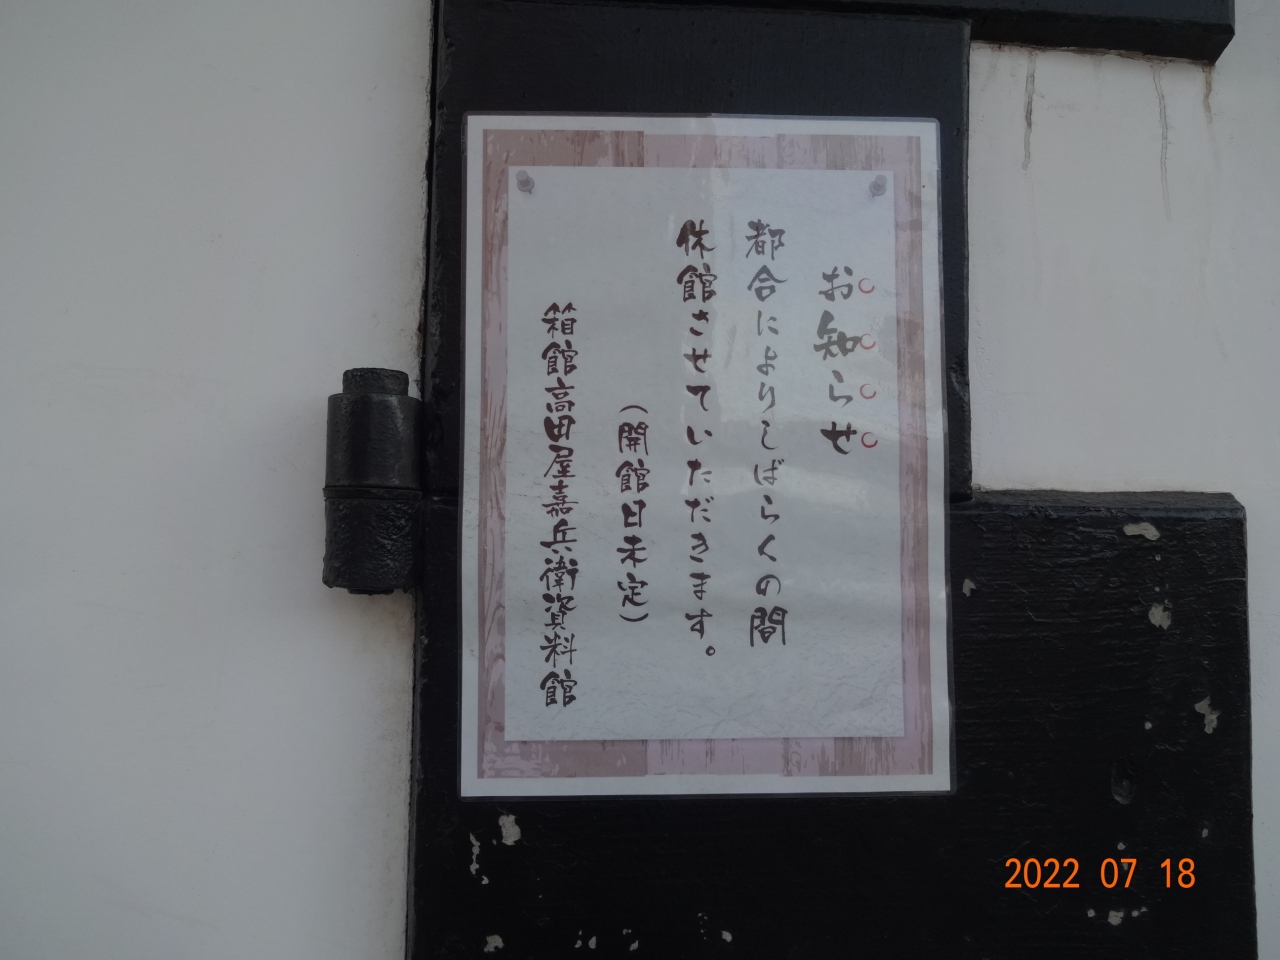 お知らせ
都合によりしばらくの間
休館させていただきます。
(開館日未定)
箱館高田屋嘉兵衛資料館
2022 07 18